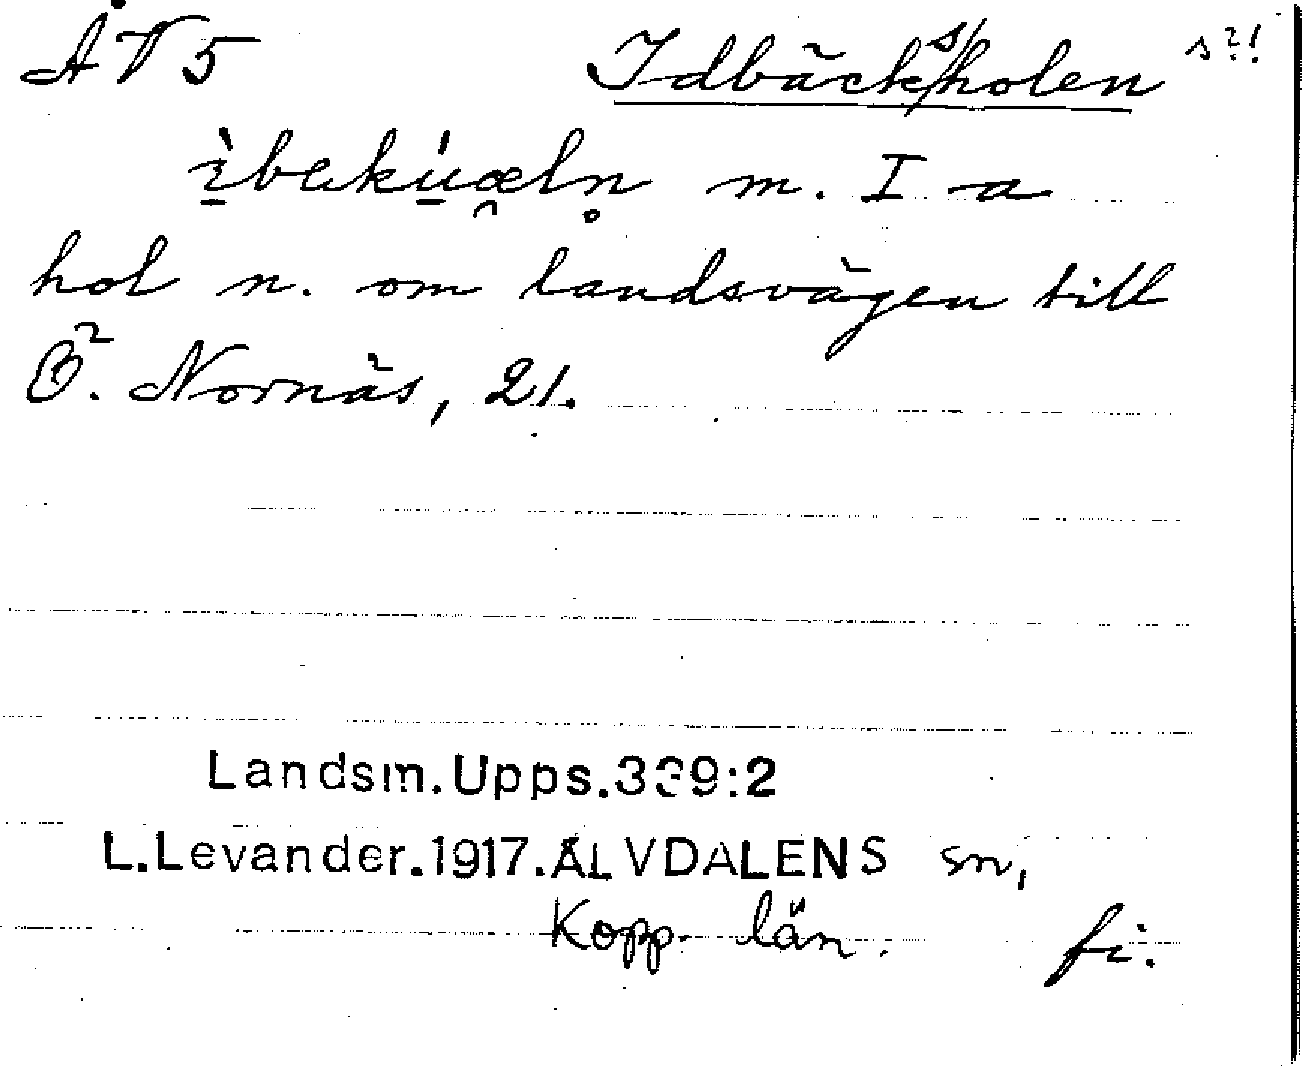 ÅV5 Idbäck/s/holen s?!
m. I a
hol n. om landsvägen till
Ö. Nornäs, 21.
Landsm.Upps.339:2
L.Levander.1917.ÄLVDALENS sn,
Kopp. län. fi.